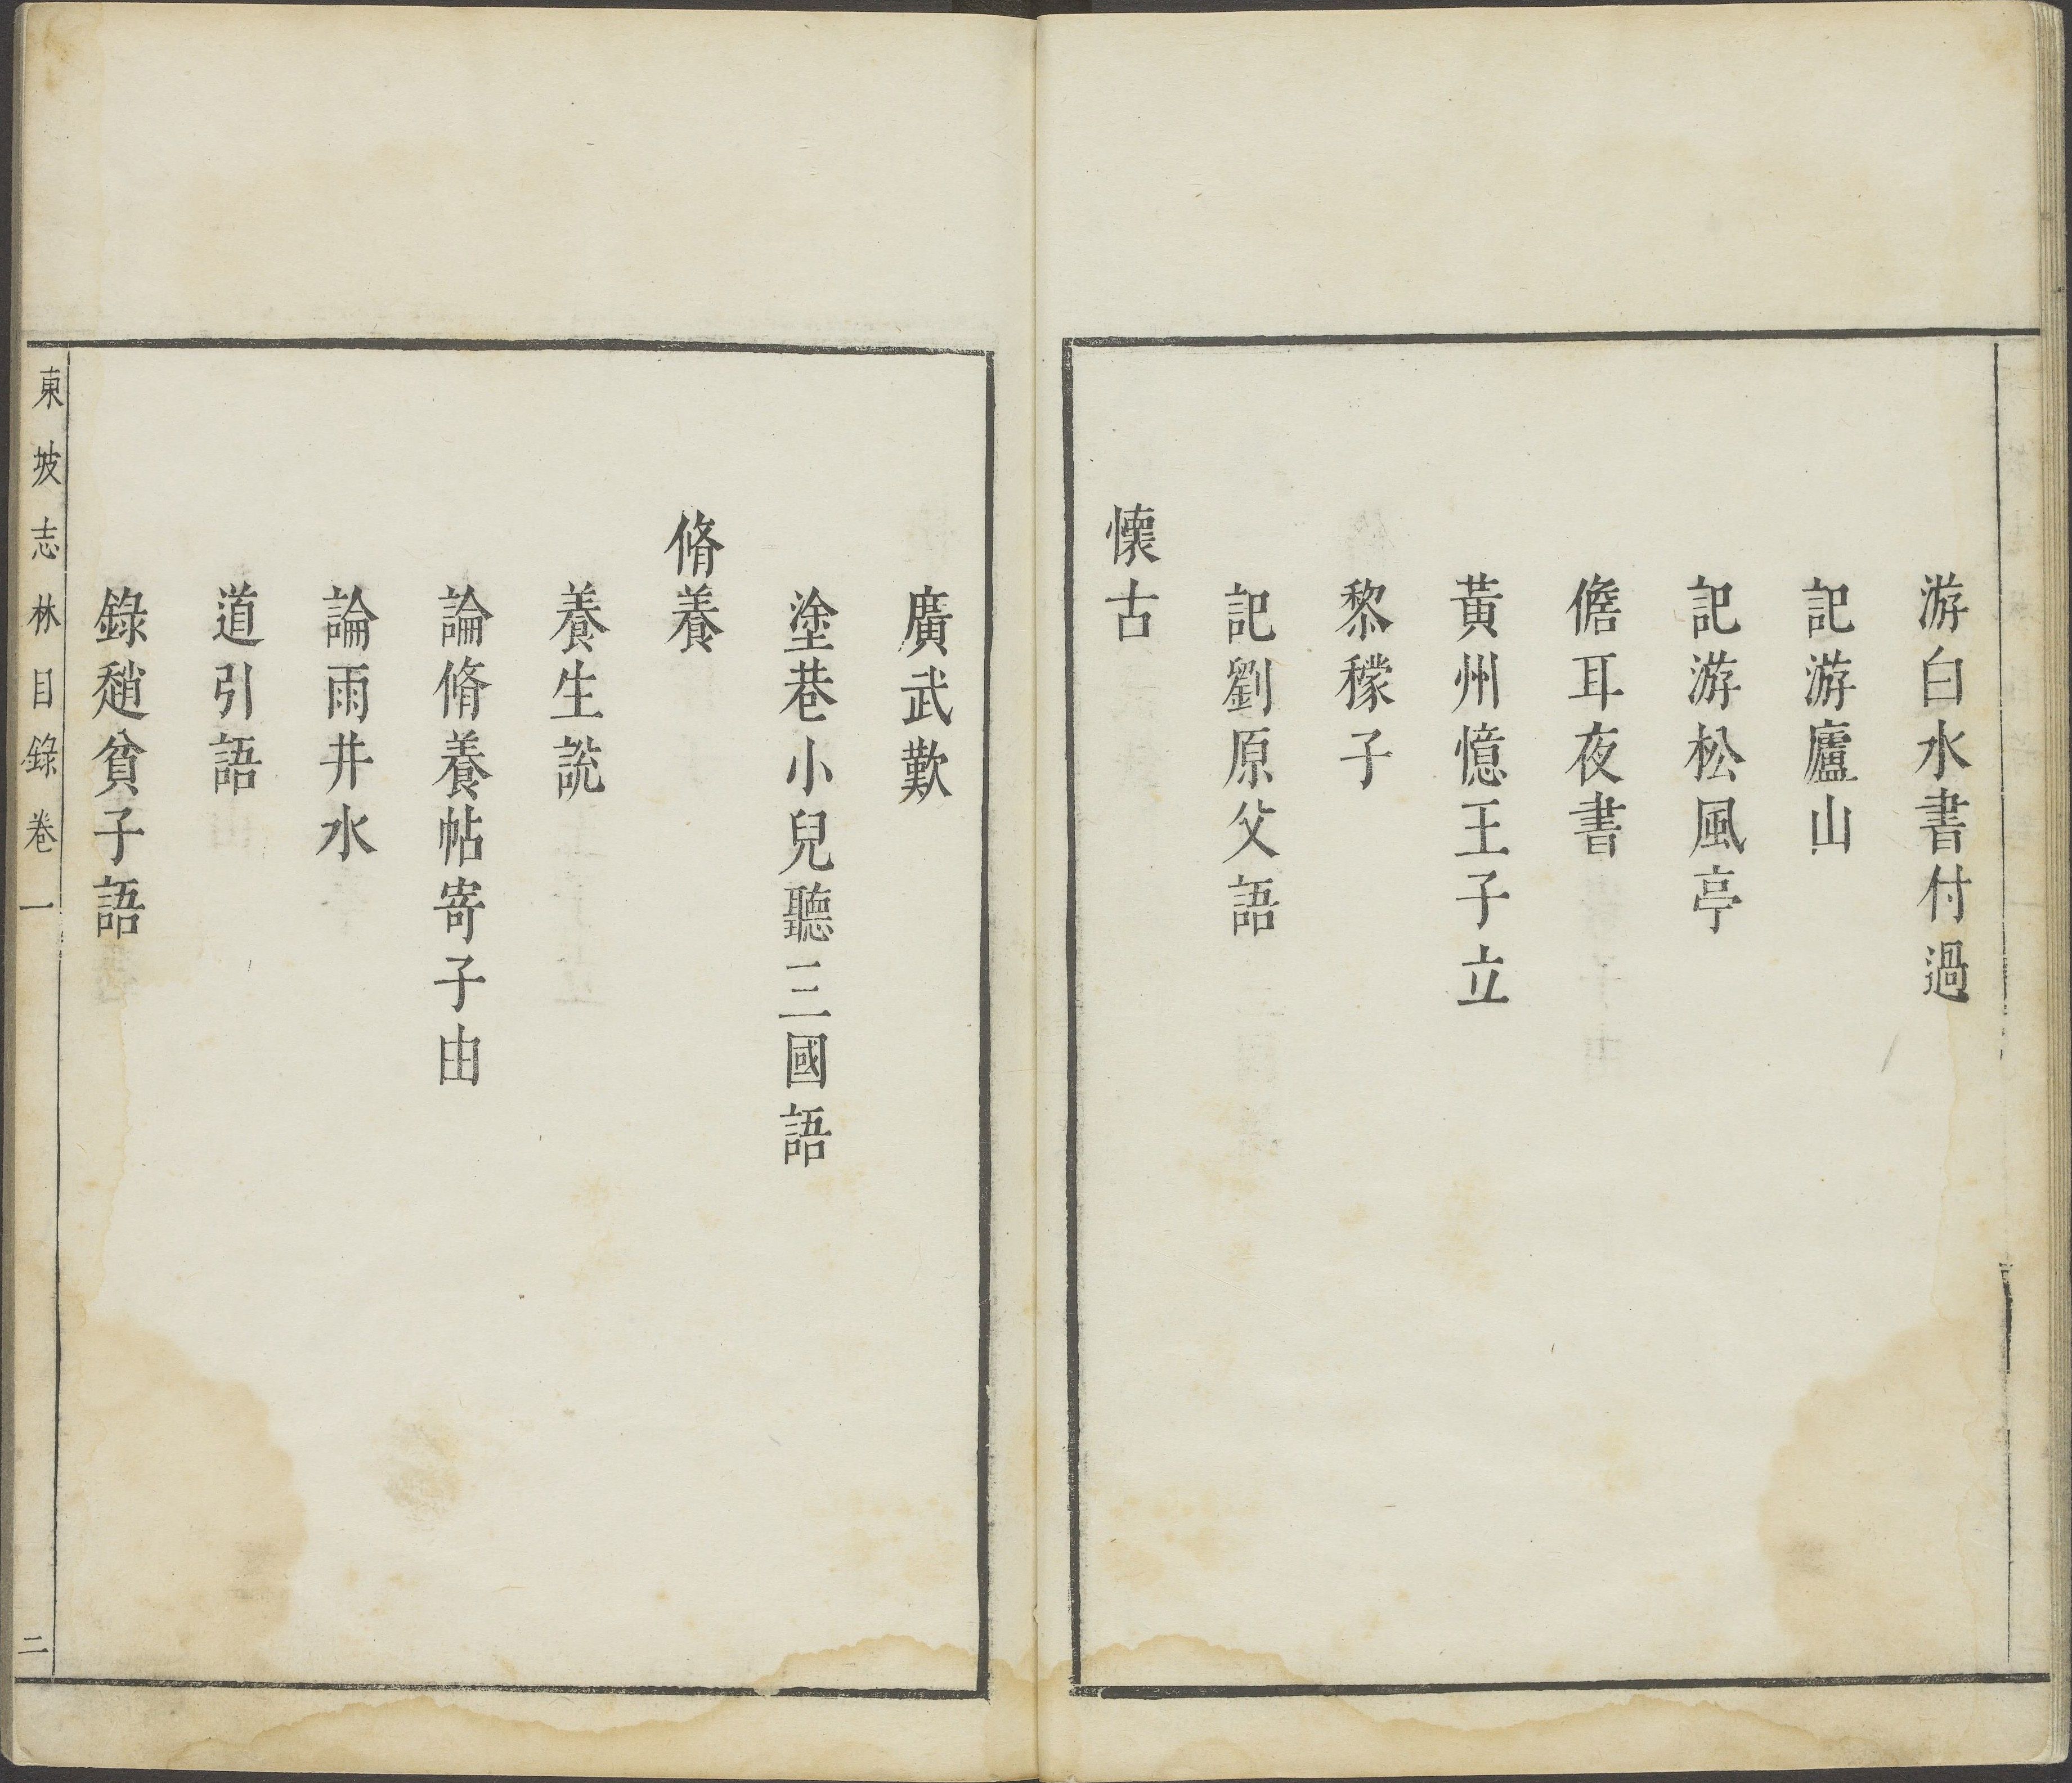 游白水書付過
記游廬山
記游松風亭
儋耳夜書
黃州憶王子立
黎檬子
記劉原父語
懷古
廣武歎
塗巷小兒聽三國語
脩養
養生說
論脩養帖寄子由
論雨井水
道引語
錄趙貧子語
東坡志林目錄卷一
二